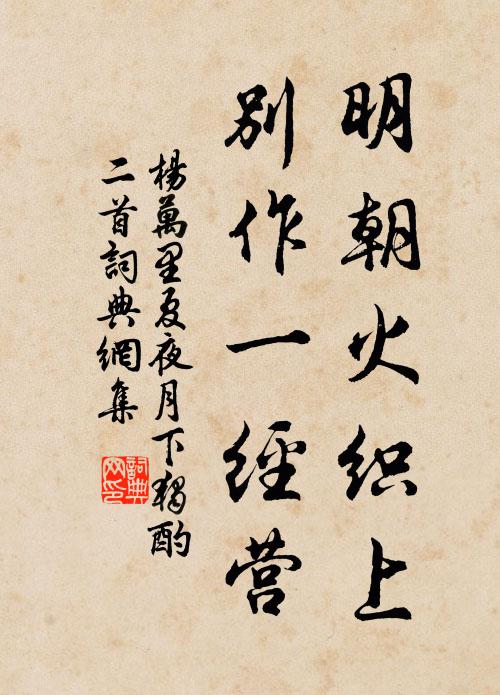 明朝火织上
别作一經营
楊萬里夏夜月下獨酌
二首詞典網集
詞典
网印